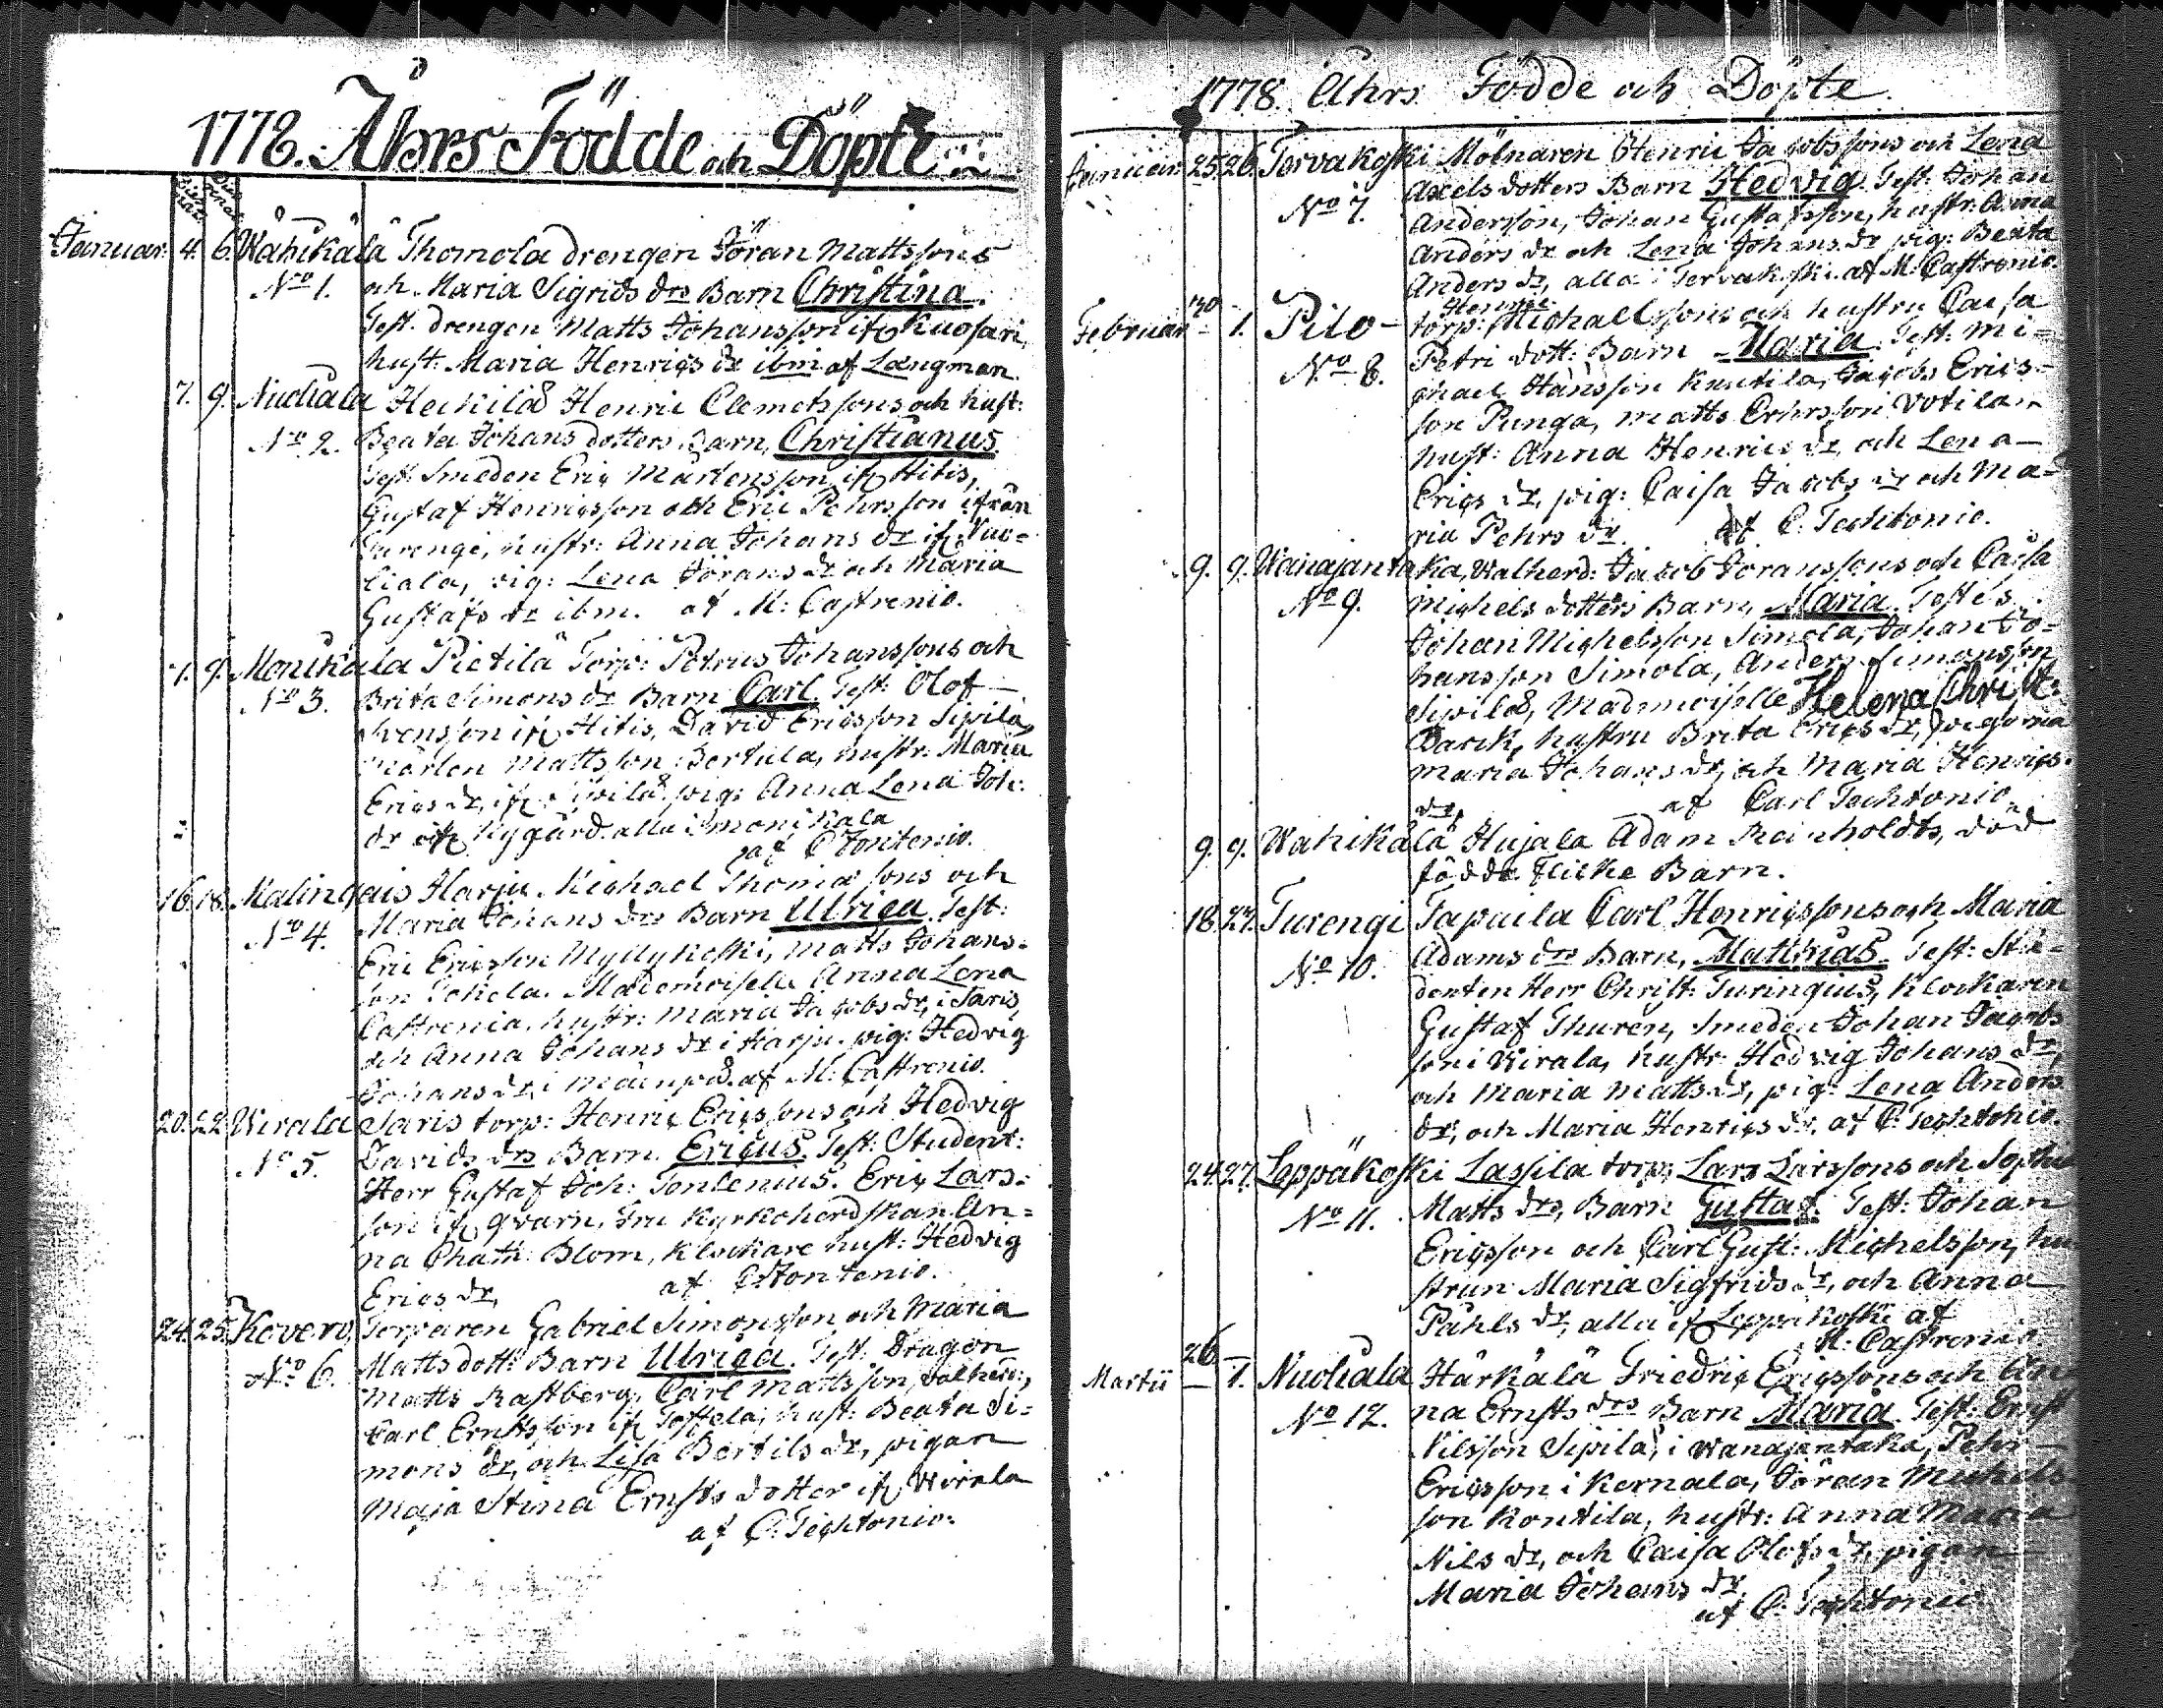 1778. Åhrs Födde och Döpte
Januar: 4. 6. Wåhikälä Thomola drengen Jöran Mattssons
No 1. och Maria Sigrids drs Barn Christina.
Test. drengen Matts Johansson if Kuosari,
hust: Maria Henriçs dr ibm af Längman.
7. 9. Nuoliala Heikilä Henric Clemetssons och hust:
No 2. Beata Johans dotters Barn, Christianus.
Test. Smeden Eriç Mårtensson if Hitis,
Gustaf Henriçsson och Eric Pehrsson ifrån
Turengi, hustr: Anna Johans dr if Nuo=
liala, pig: Lena Jörans dr och Maria
Gustafs dr ibm. af M: Castrenio.
7. 9. Monikala Pietilä Torp: Petrus Johanssons och
No 3. Brita Simons dr Barn Carl. Test: Olof
Svensson if Hitis, David Ericsson Sipilä,
Mårten Mattsson Bertula, hustr: Maria
Erics dr, if Sipilä, pig: Anna Lena Joh:
dr if Nygård. alla i Monikala
af C Tontenio.
16. 18. Malingais Harju Michael Thomæ sons och
No 4. Maria Johans drs Barn Ulrica. Test:
Eric Ericsson Myllykoski, Matts Johans=
son Tokela. Mademoiselle Anna Lena
Castrenia, hustr: Maria Jacobs dr, i Saris,
och Anna Johans dr i Harju. pig: Hedvig
Johans dr, i Mäenpä af M: Castrenio.
20. 22. Wirala Saris torp: Henric Ericssons och Hedvig
No 5. Davids drs Barn Ericus. Test: Student:
Herr Gustaf Joh: Tontenius. Eriç Lars=
son if Qvarn, Fru Kyrkoherdskan An=
na Chath: Blom, Klockare hust: Hedvig
Erics dr, af C Tontenio.
24. 25. Kovero, Torparen Gabriel Simonsson och Maria
No 6. Matts dott: Barn Ulrica. Test: Dragon
Matts Rastberg, Carl Mattsson, valherd:,
Carl Ernstsson if Toffela, hust: Beata Si=
mons dr, och Lisa Bertils dr, pigan
Maja Stina Ernsts dotter if Wirala
af C. Techtonio.
1778. Åhrs Födde och Döpte
Januar: 25. 26. Tervakoski Mölnaren Henric Jacobssons och Lena
No 7. Axels dotters Barn Hedvig. Test: Johan
Andersson, Johan Gustafsson, hustr: Anna
Anders dr och Lena Johans dr pig: Beata
Anders dr, alla i Tervakoski. af M: Castrenio.
Henric
Februar: 30 1. Pilo- torp: Michaelssons och hustru Caisa
No 8. Petri dott: Barn Maria. Test: Mi=
chael Hansson Knutila, Jacobs Erics=
son Punga, Matts Erhrsson Votila
hust: Anna Henrics dr, och Lena
Erics dr, pig: Caisa Jacobs dr och Ma=
ria Pehrs dr. af C. Techtonio.
9. 9. Wanajantaka, Walherd: Jacob Göranssons och Caisa
No 9. Michels dotters Barn, Maria. Testes
Johan Michelsson Simola, Johan Jo=
hansson Simola, Anders Simonsson
Sipilä, Mademoiselle Helena Christ:
Barck, hustru Brita Erics dr, pigorna
Maria Johans dr, och Maria Henrics
dr, af Carl Techtonio
9. 9. Wahikälä Hujala Adam Reinholdts, död
födde Flicke Barn.
18. 23. Turengi Tapuila Carl Henricssons och Maria
No 10. Adams drs Barn, Matthias. Test: Stu=
denten Herr Christ: Turingius, Klockaren
Gustaf Thuren, Smeden Johan Jacobs
son i Wirala, hustr: Hedvig Johans dr,
och Maria Matts dr, pig: Lena Anders
dr, och Maria Henrics dr, af C. Techtonio.
24. 27. Leppäkoski Lassila torp: Lars Larssons och Sophia
No 11. Matts drs, Barn Gustaf. Test: Johan
Ericsson och Carl Gust: Michelsson, hu
strun Maria Sigfrids dr, och Anna
Påhls dr, alla if Leppäkoski af
M: Castrenio
Martii 26 1. Nuoliala Härkälä Friedric Ericssons och An
No 12. na Ernsts drs Barn Maria. Test: Ernst
Nilsson Sipilä, i Wanajantaka, Pehr
Ericsson i Kernala, Jöran Michels
son Kontila, hustr: Anna Maria
Nils dr, och Caisa Olofs dr, pigan
Maria Johans dr
af C. Techtonio